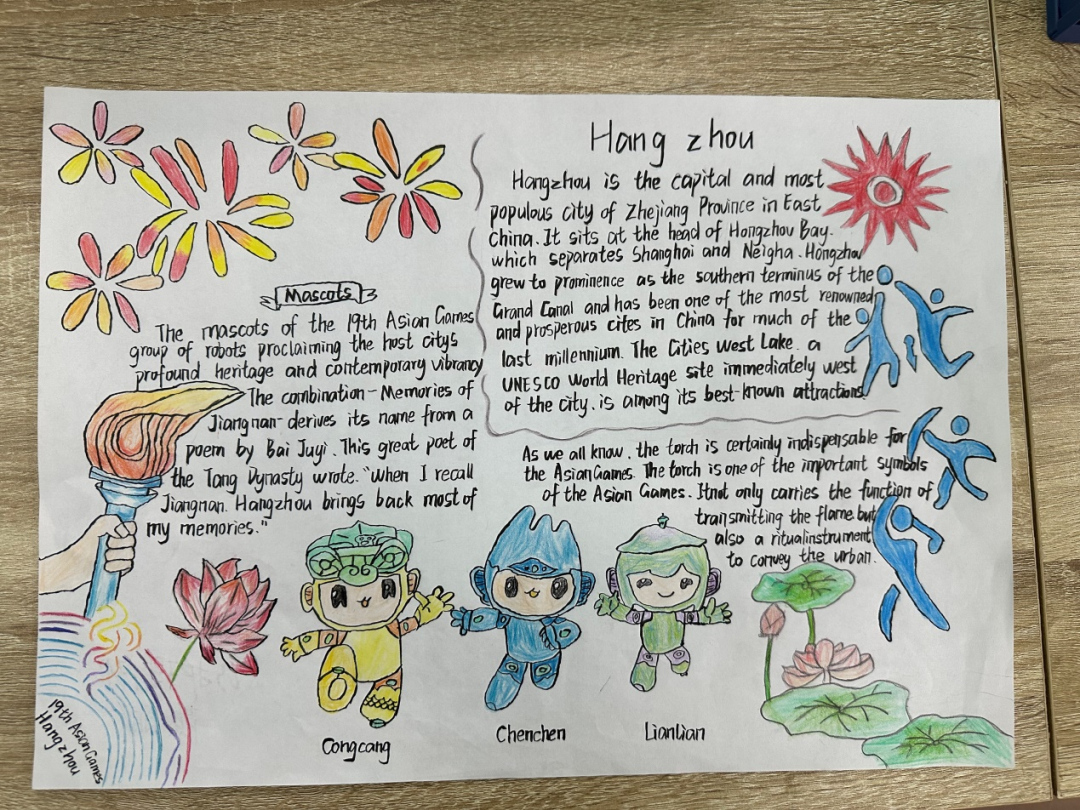 Hang zhou
Hangzhou is the capital and most
populous city of Zhejiang Province in East
China. It sits at the head of Hongzhou Bay.
which separates Shanghai and Neigha. Hongzhou
grew to prominence as the southern terminus of the
Grand Canal and has been one of the most renowned
and prosperous cites in China for much of the
last millennium. The Cities West Lake. a
UNESCO World Heritage site immediately west
of the city. is among its best-known attractions.
Mascots
The mascots of the 19th Asian Games
group of robots proclaiming the host citys
profound heritage and contemporary vibrancy
The combination-Memories of
Jiangnan-derives its name from a
poem by Bai Juyi. This great poet of
the Tang Dynasty wrote. "when I recall
Jiangnan. Hangzhou brings back most of
my memories."
As we all know, the torch is certainly indispensable for
the Asian Games. The torch is one of the important symbols
of the Asian Games. Itnot only carries the function of
transmitting the flame. but
also a ritualinstrument
to convey the urban.
Congcang
Chenchen
Lianlian
19th Asian Games
Hangzhou